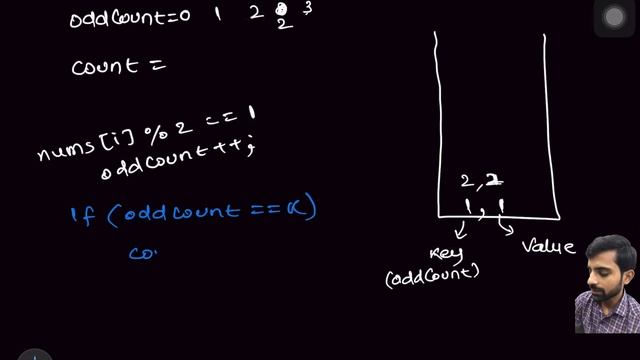 oddCount=0 1 2 2 3
count =
nums[i] % 2 == 1
oddcount++;
If (oddcount == K)
co
2, 2
1, 1
Key
(oddCount)
Value